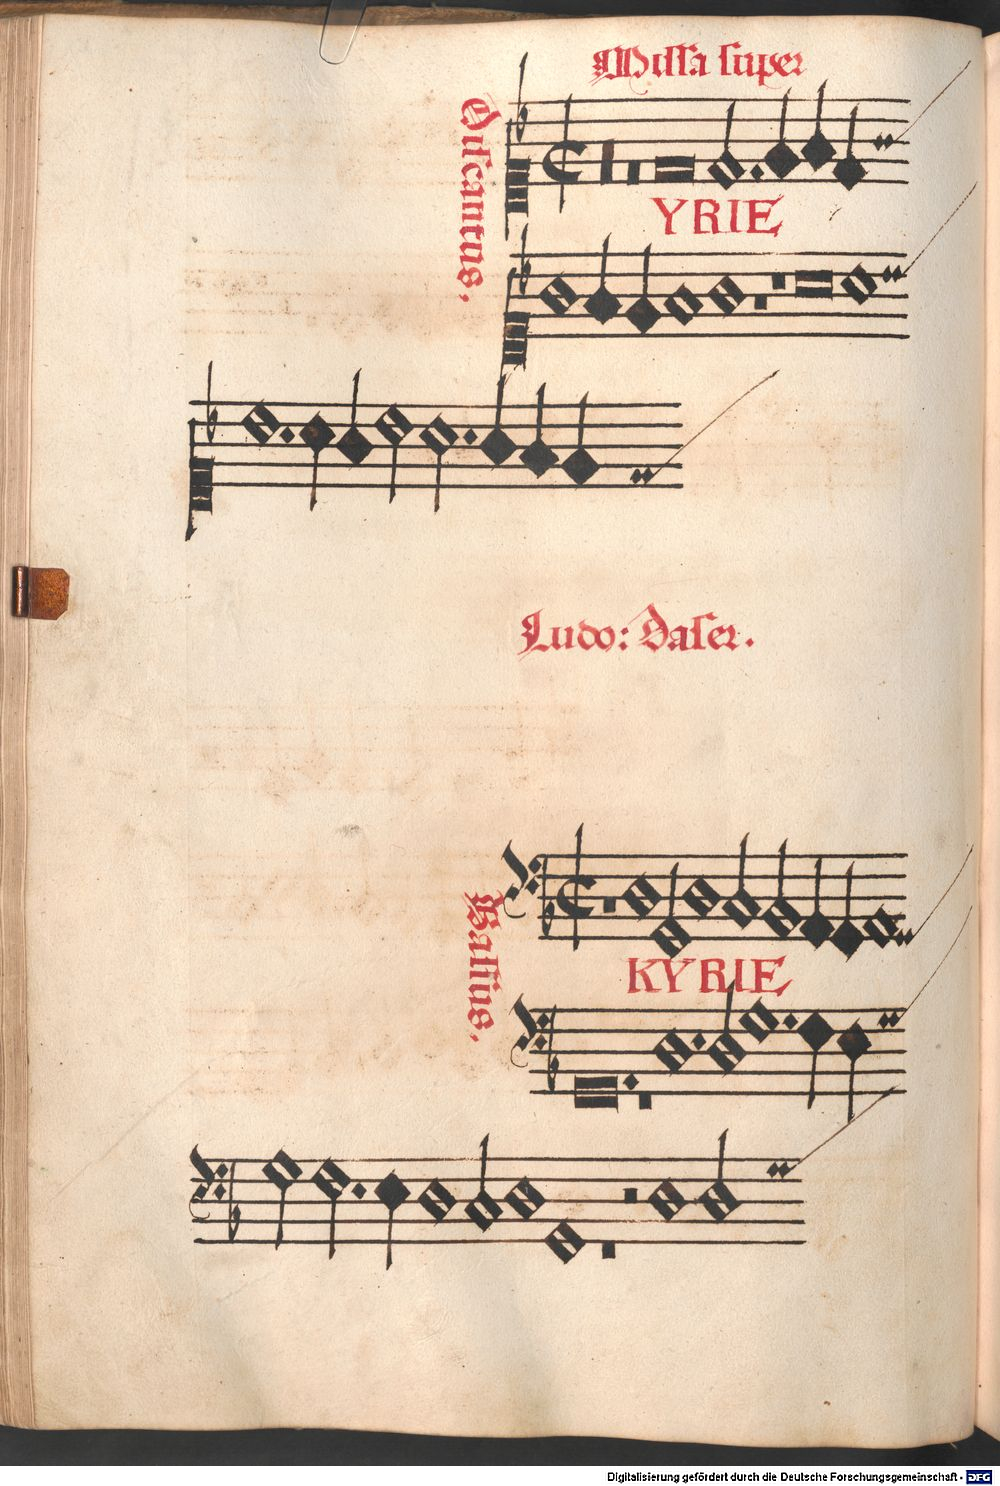 Missa super
Discantus,
YRIE
Ludo: Daser.
Bassus,
KYRIE
Digitalisierung gefördert durch die Deutsche Forschungsgemeinschaft - DFG